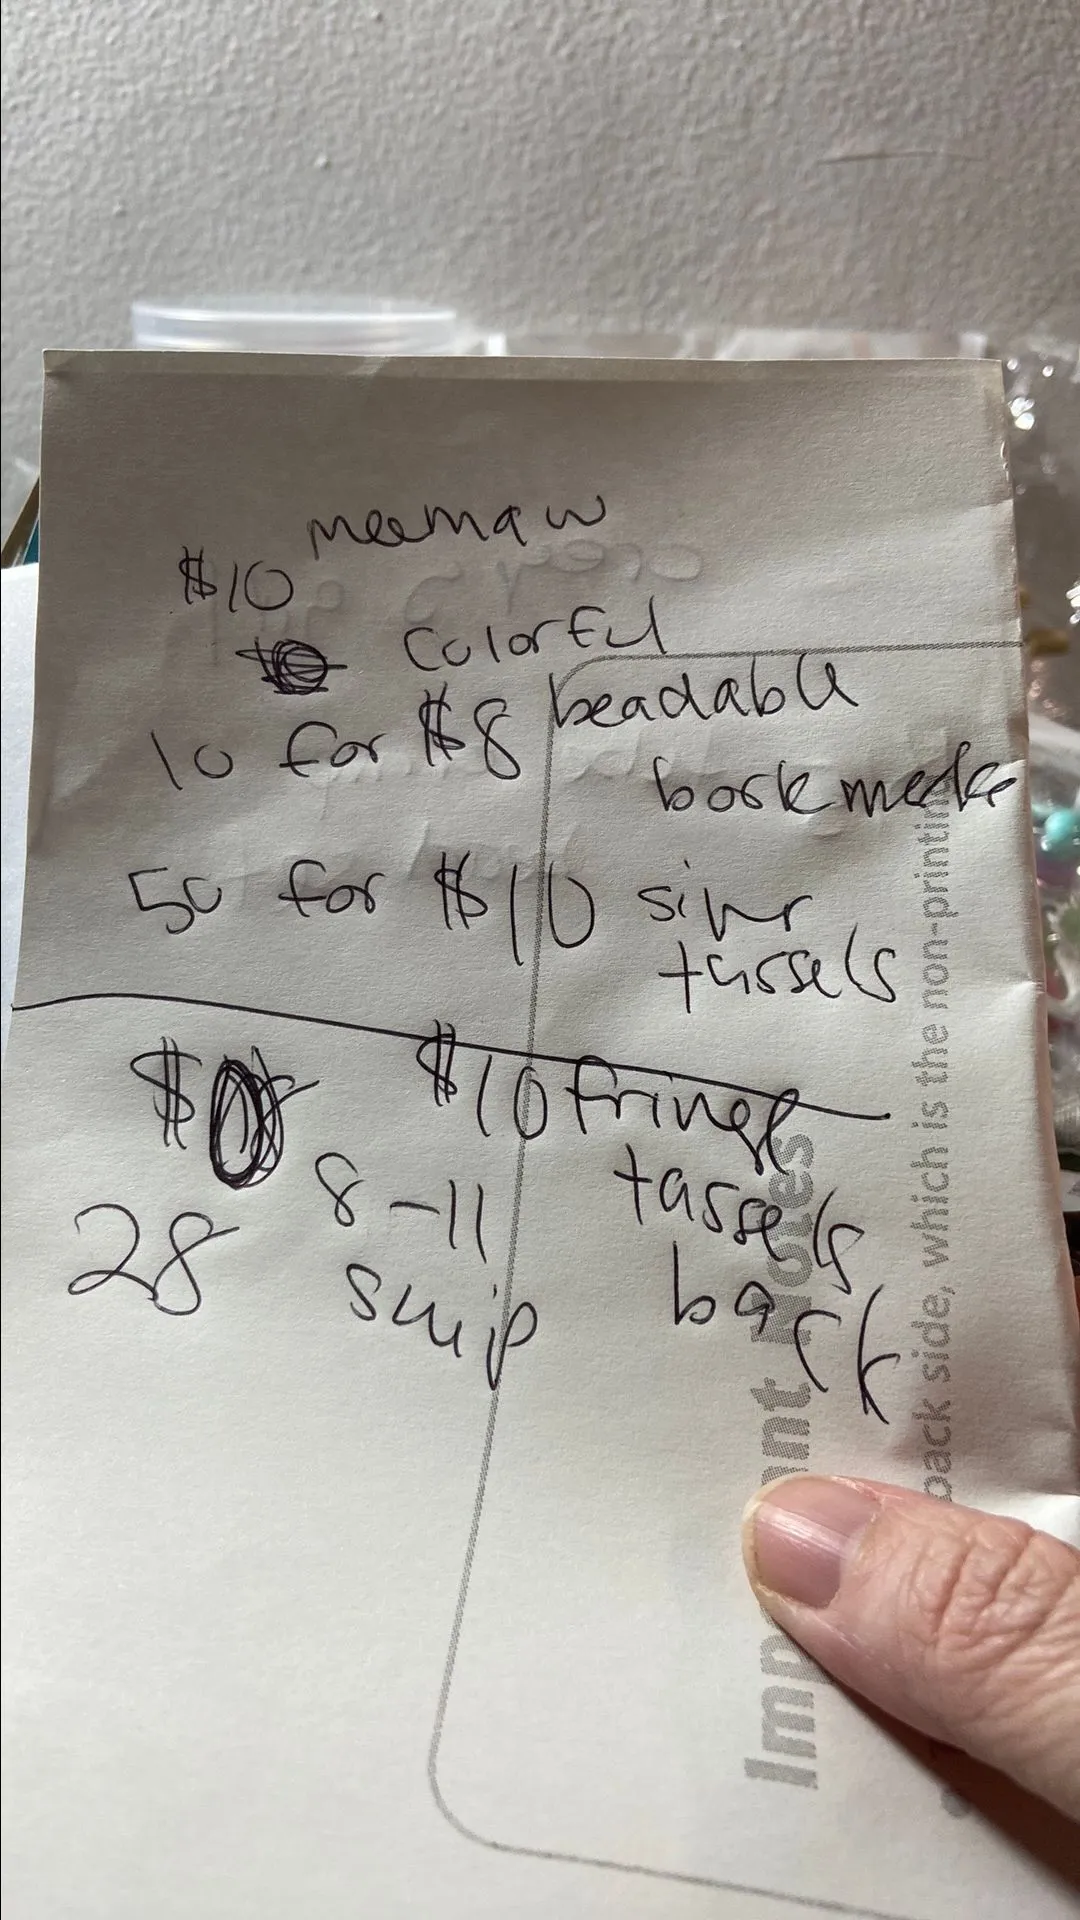 meemaw
$10
colorful
10 for $8 beadable
bookmarks
50 for $10 silvr
tassels
$10 fringe
tassels
8-11
28
ship
back
Important Notes
back side, which is the non-printin